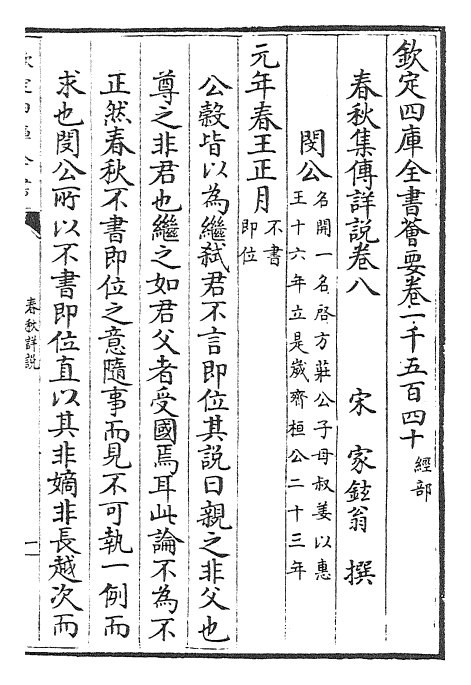 欽定四庫全書薈要卷一千五百四十 經部
春秋集傳詳說卷八
宋 家鉉翁 撰
閔公 名開一名啓方莊公子母叔姜以惠
王十六年立是歲齊桓公二十三年
元年春王正月 不書
即位
公穀皆以為繼弑君不言即位其說曰親之非父也
尊之非君也繼之如君父者受國焉耳此論不為不
正然春秋不書即位之意隨事而見不可執一例而
求也閔公所以不書即位直以其非嫡非長越次而
欽定四庫全書
春秋詳說
一